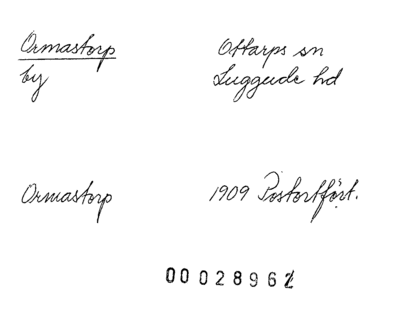 Ormastorp Ottarps sn
by Luggude hd
Ormastorp 1909 Postortfört.
0002896